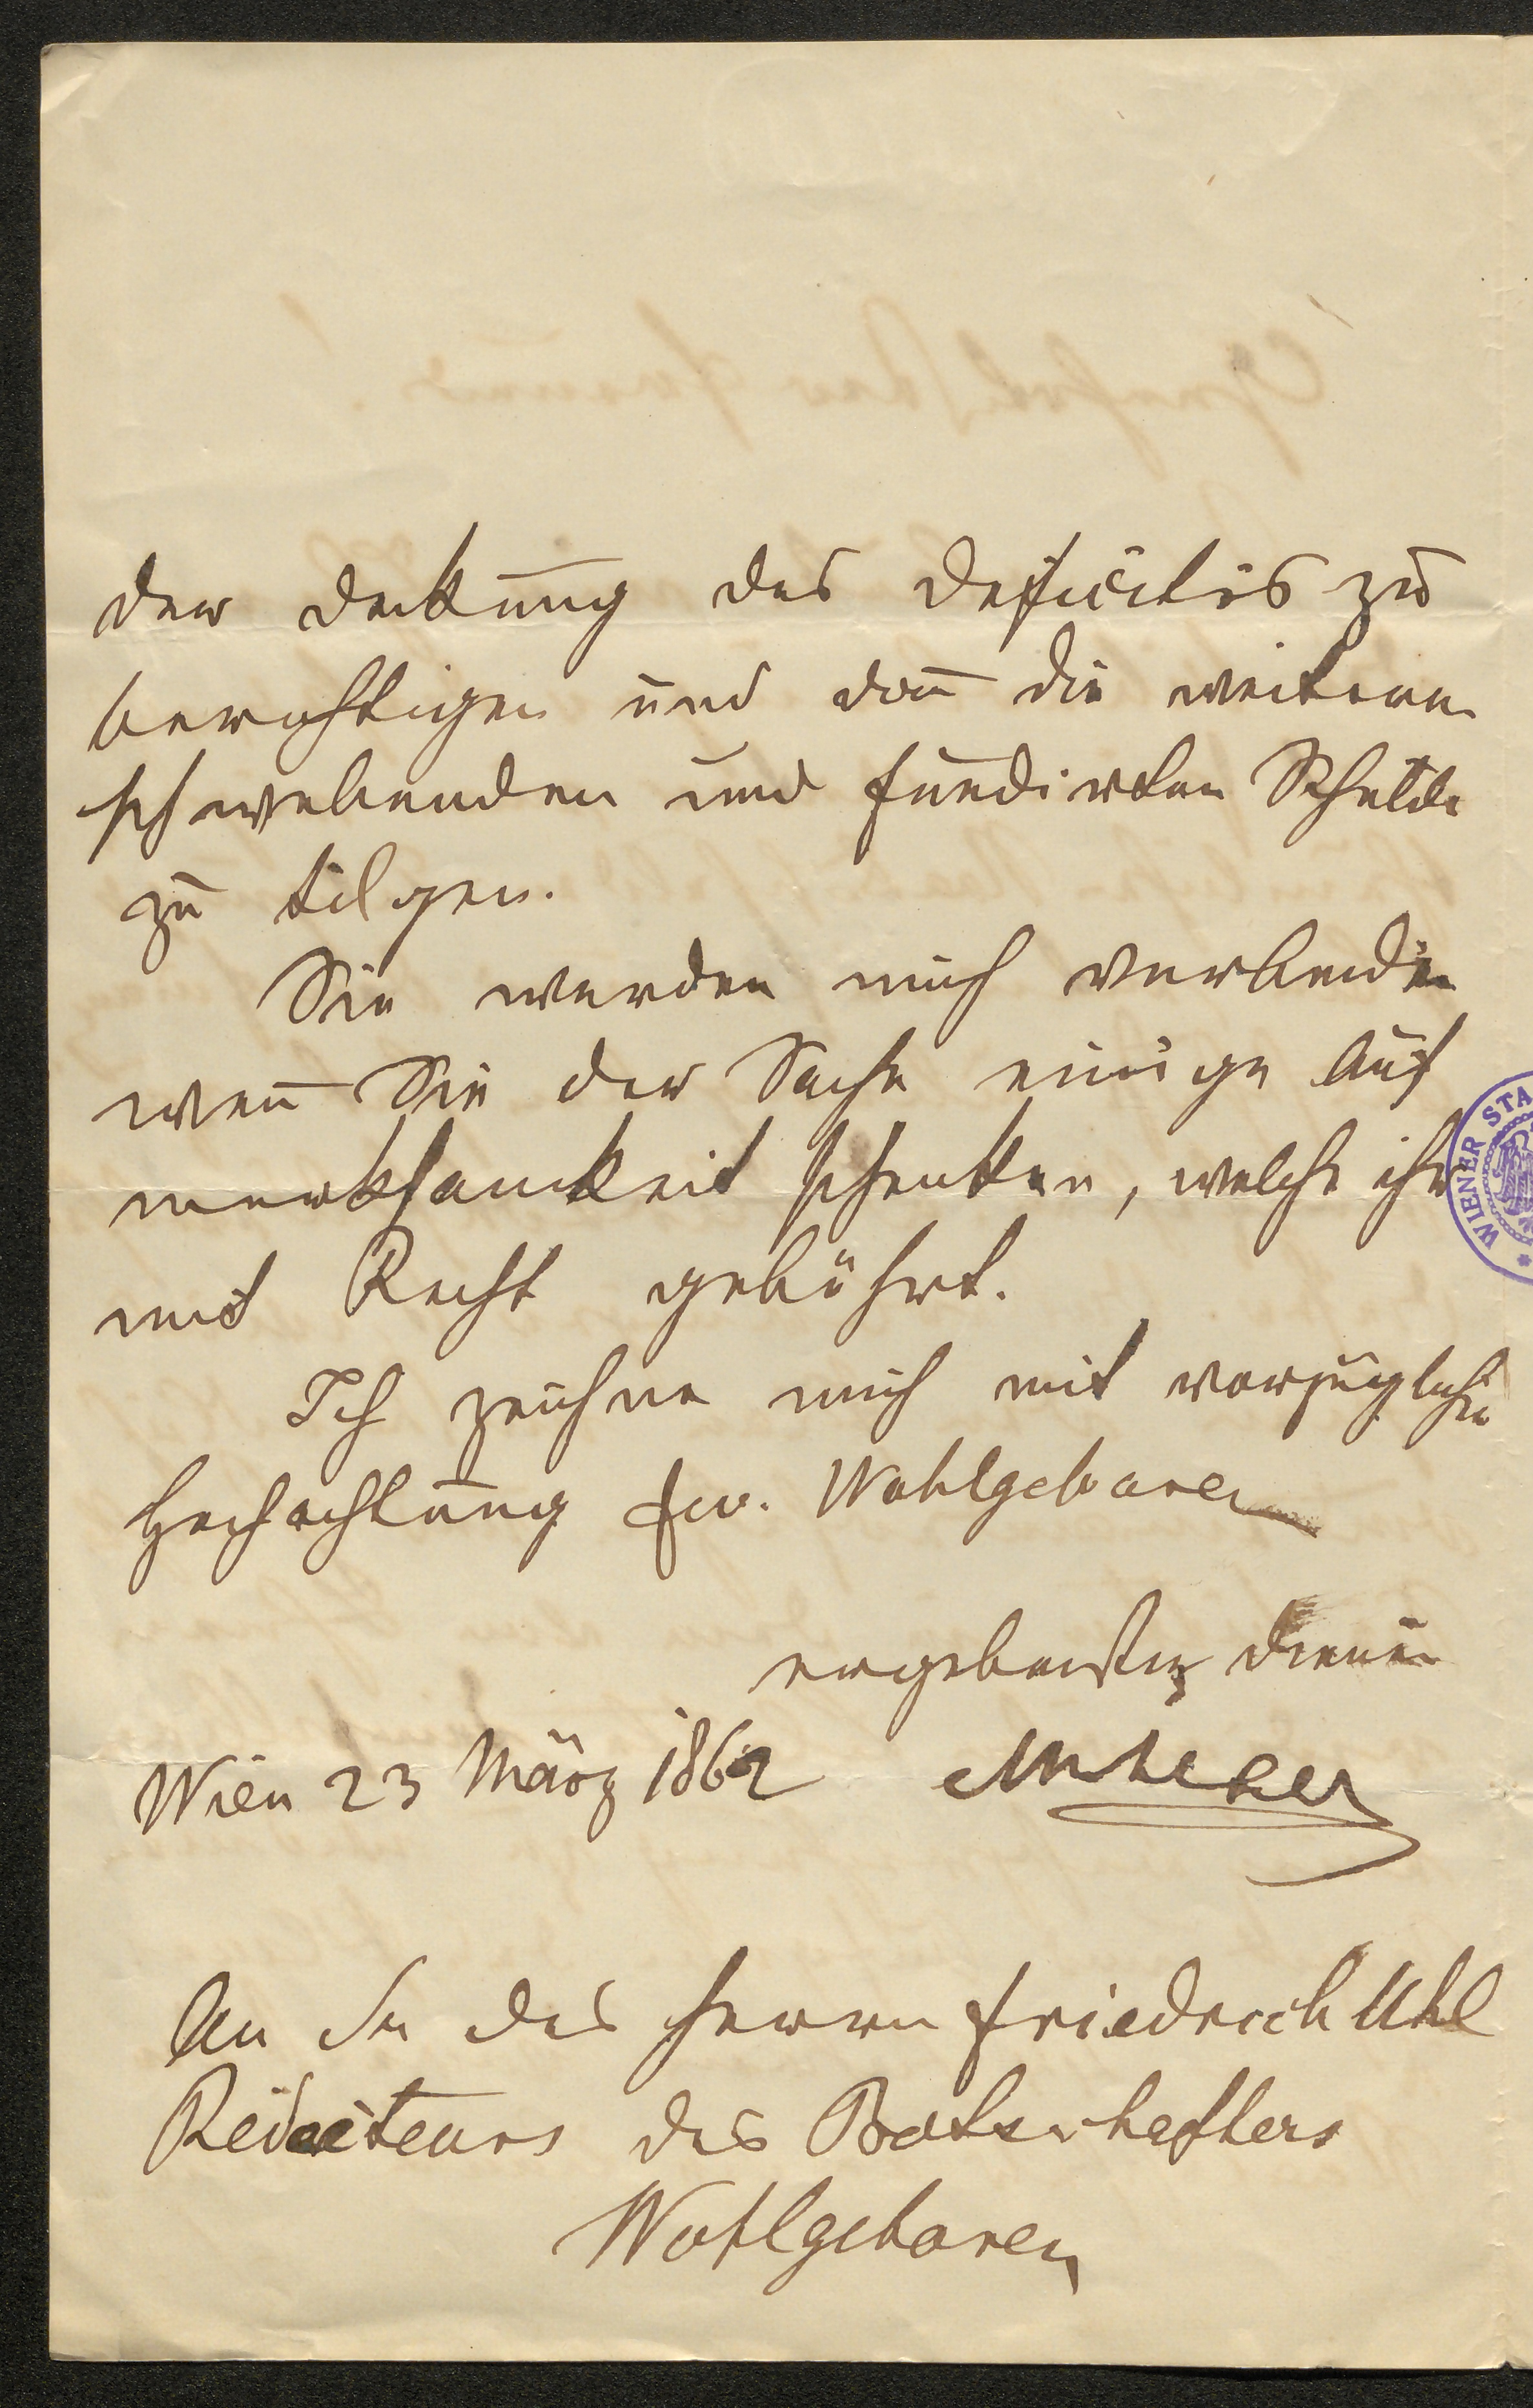 der Deckung des Deficites zu
berechtigen und dann die weiteren
schwebenden und fundirten Schulden
zu tilgen.
Sie werden mich verbinden
wenn Sie der Sache einige Auf
merksamkeit schenken, welche ihr
mit Recht gebührt.
Ich zeichne mich mit vorzüglicher
Hochachtung Euer Wohlgeboren
ergebenster Diener
Wien 23 März 1862
An Sr des Herrn Friedrich Uhl
Redacteurs des Botschafters
Wohlgeboren
WIENER STA